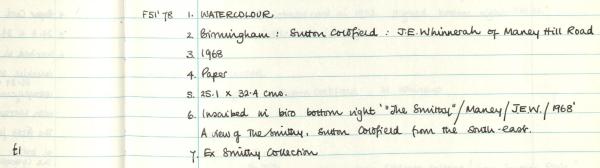 FSI '78 1. WATERCOLOUR
2. Birmingham : Sutton Coldfield : J.E. Whinnerah of Maney Hill Road
3. 1968
4. Paper
5. 25.1 x 32.4 cms.
6. Inscribed in biro bottom right '"The Smithy"/Maney/J.E.W./1968'
A view of The Smithy, Sutton Coldfield from the south-east.
7. Ex Smithy Collection